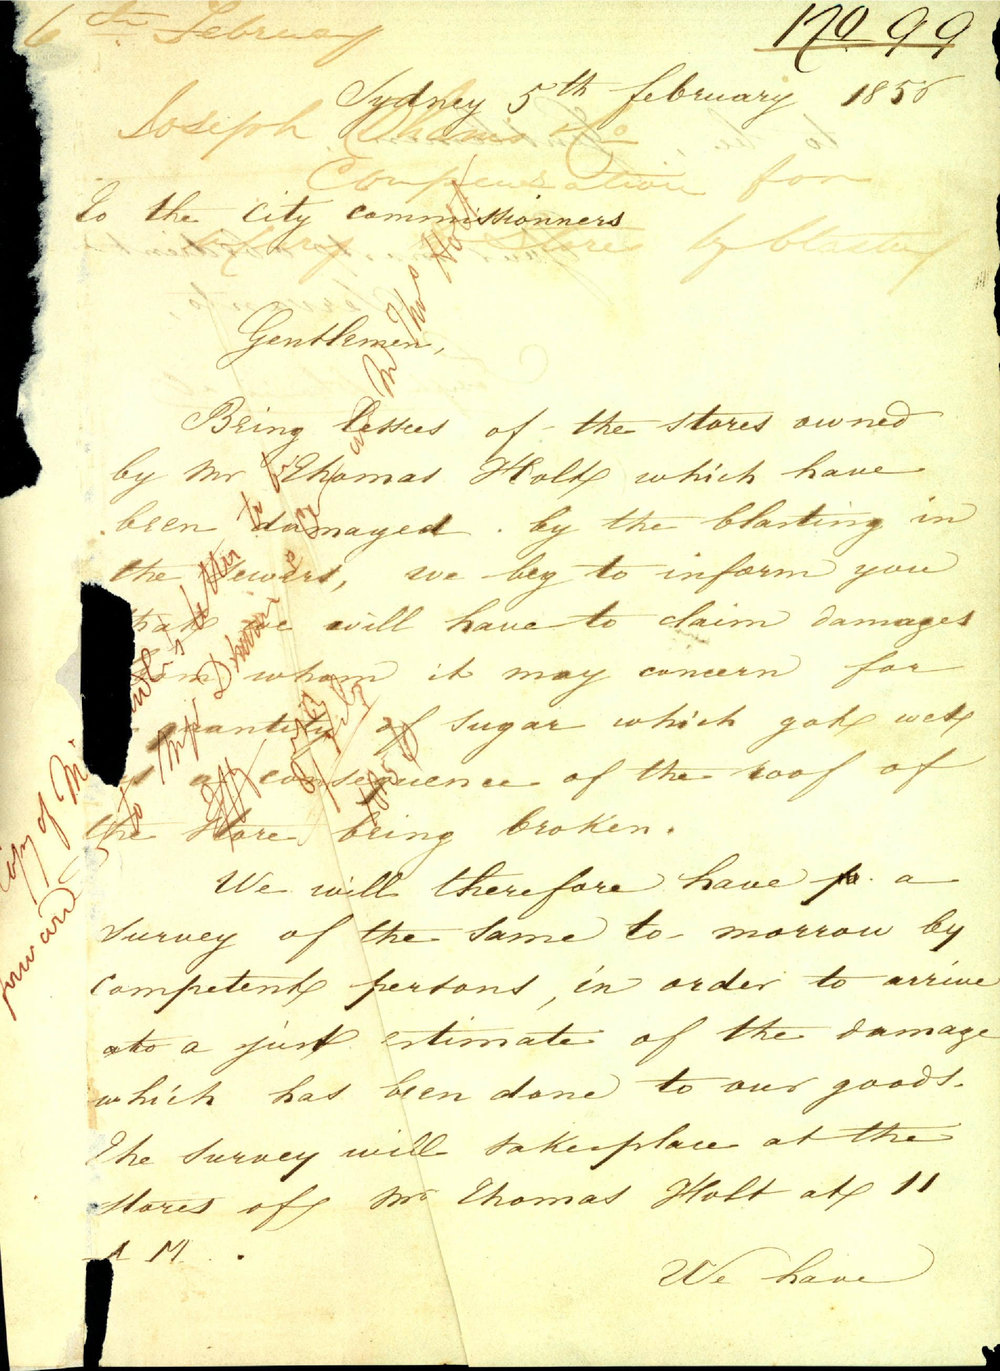 6th February
170 99
Sydney 5th february 1856
Joseph & Co
Compensation for
To the City commissionners
Stores by blasting
Gentlemen,
Being lessees of the stores owned
by Mr Thomas Holt which have
been damaged by the blasting in
the sewers, we beg to inform you
that we will have to claim damages
from whom it may concern for
quantity of sugar which got wet
as a consequence of the roof of
the store being broken.
We will therefore have a
survey of the same to-morrow by
competent persons, in order to arrive
to a just estimate of the damage
which has been done to our goods.
The survey will take place at the
stores of Mr Thomas Holt at 11
A M.
We have
Copy of
forward to
letter to
Mr Thos Holt
1856